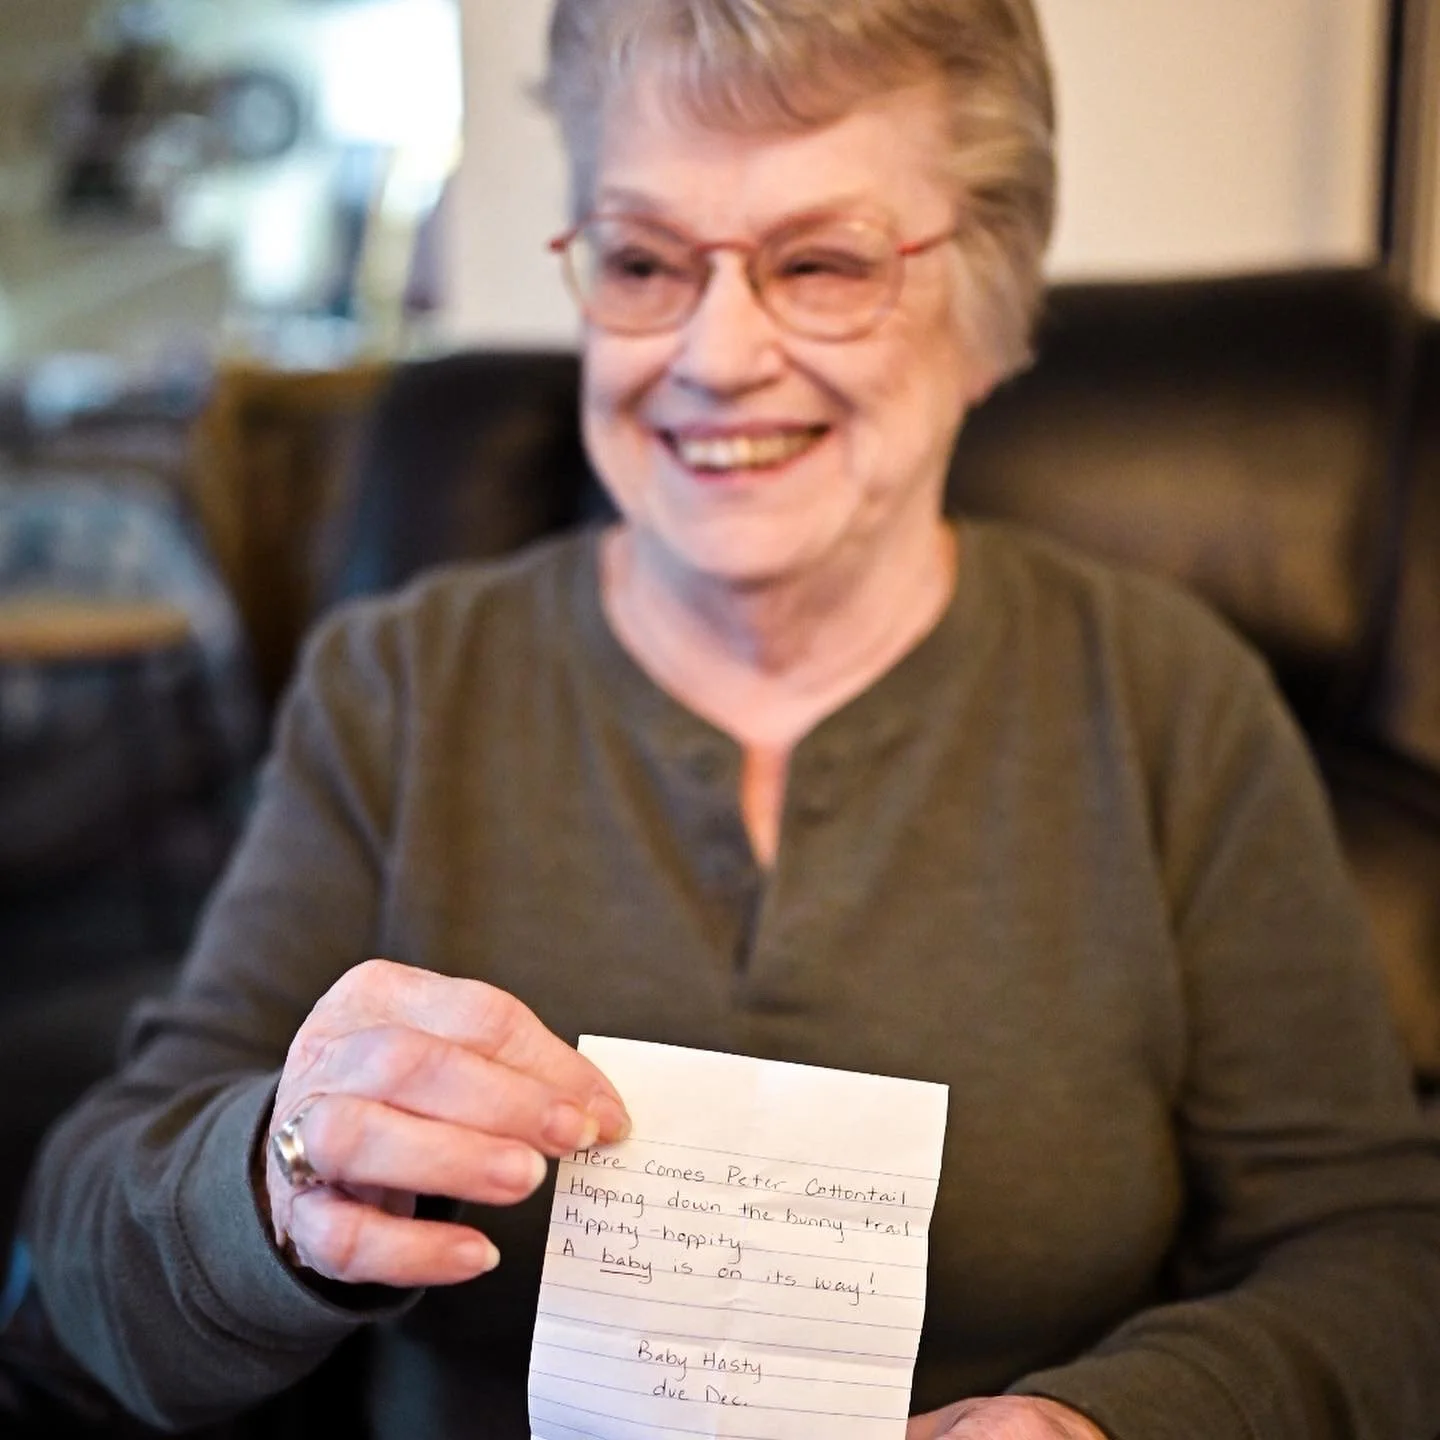 Here comes Peter Cottontail
Hopping down the bunny trail
Hippity-hoppity
A baby is on its way!
Baby Hasty
due Dec.